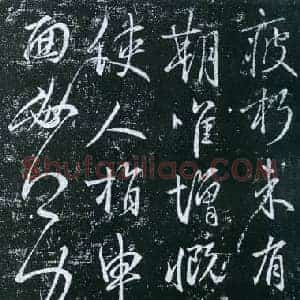 疲朽未有
期惟增慨
使人指申
面
Shufaziliao.COM